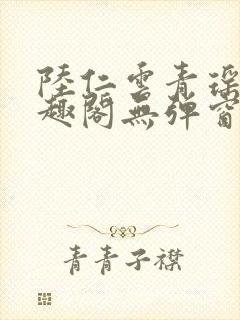 陸仁雲青瑤
趣閣無彈窗
青青子襟